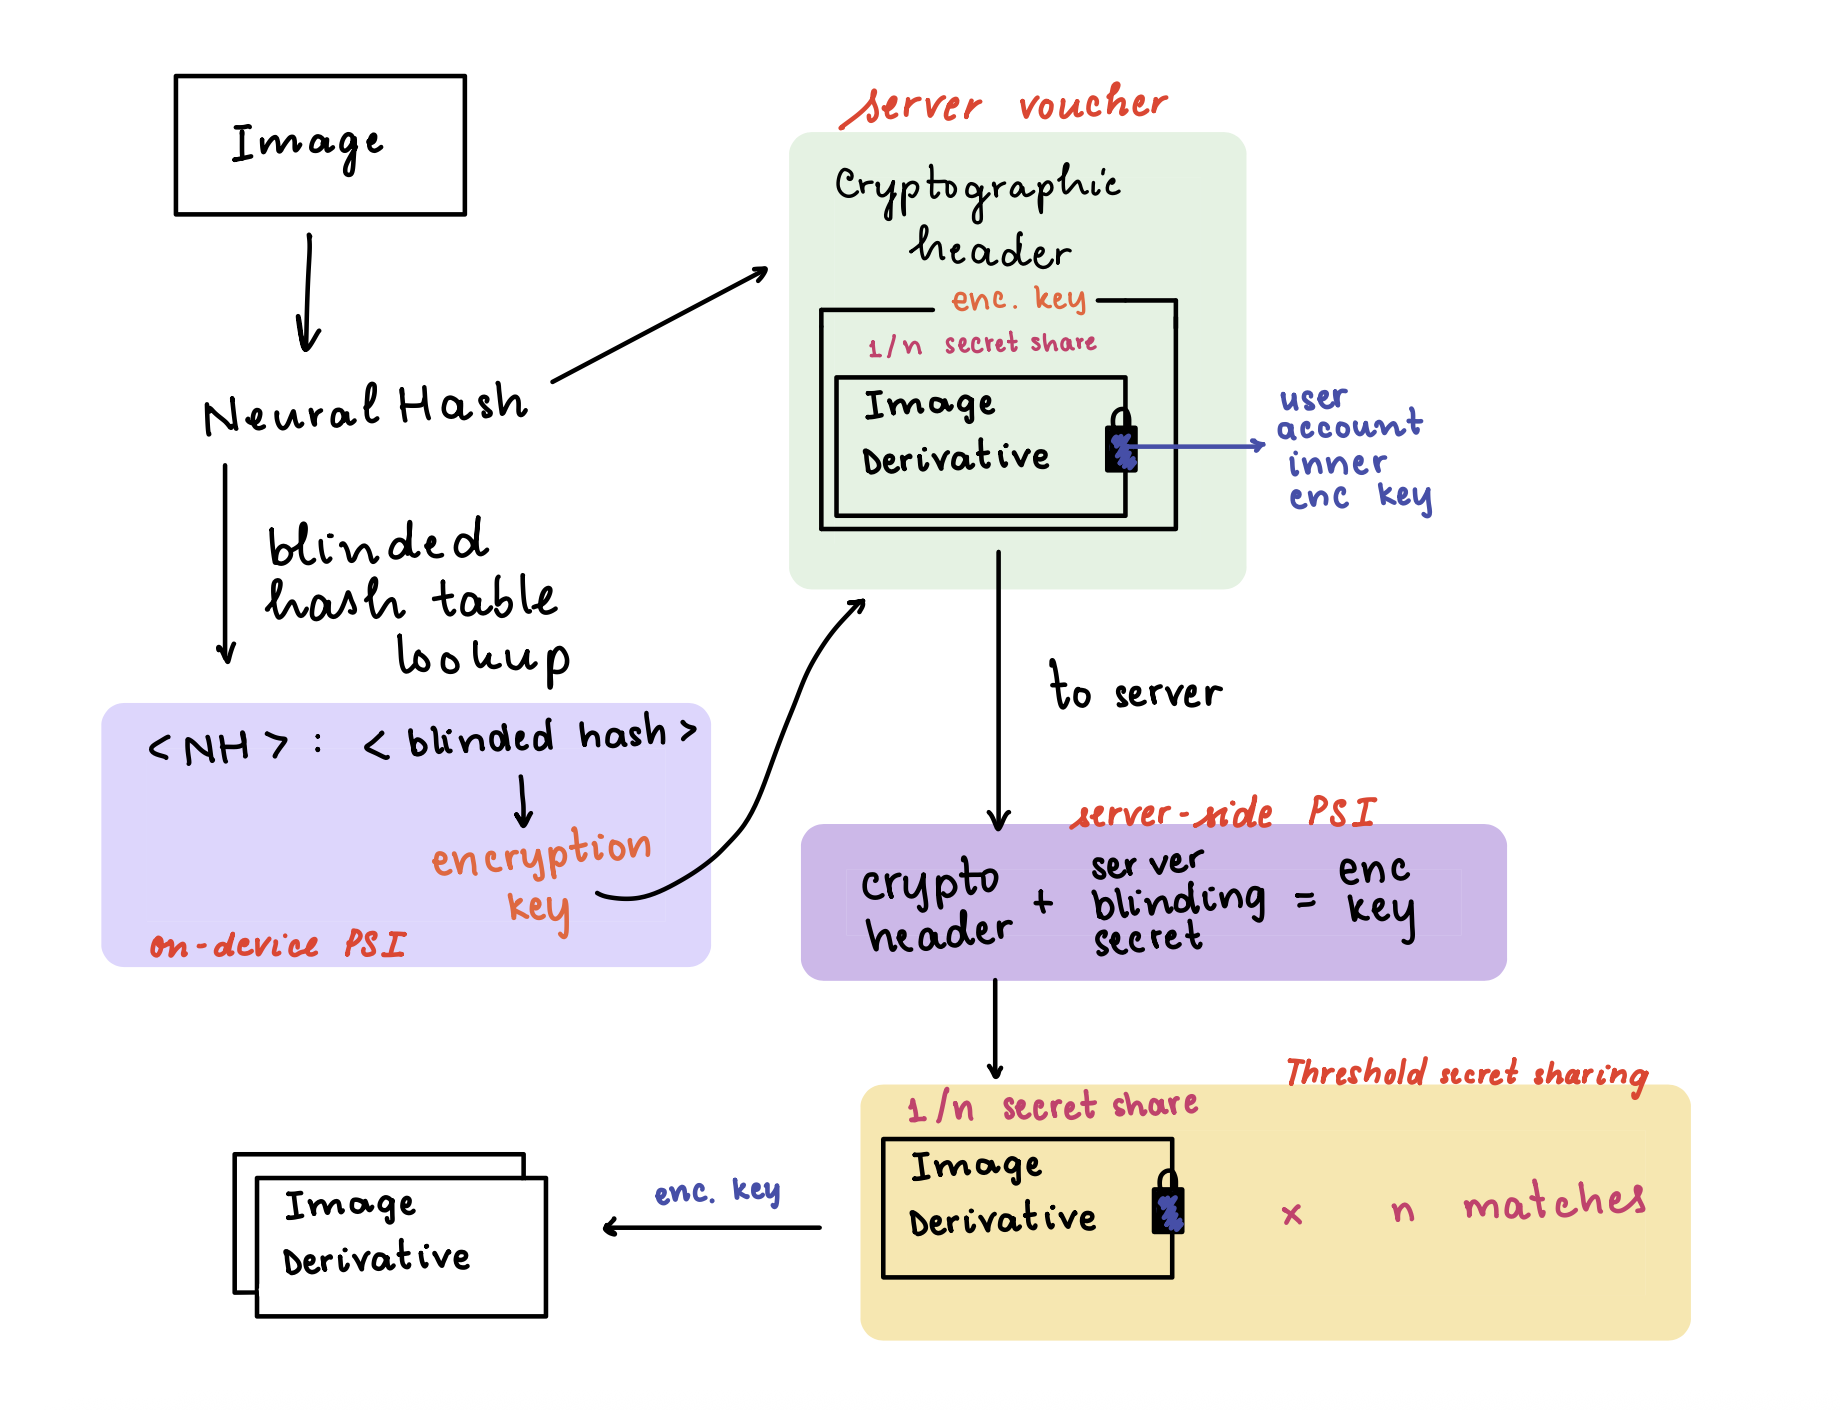 Image
Neural Hash
blinded
hash table
lookup
<NH> : <blinded hash>
encryption
key
on-device PSI
server voucher
Cryptographic
header
enc. key
1/n secret share
Image
Derivative
user
account
inner
enc key
to server
server-side PSI
crypto
header
+
server
blinding
secret
=
enc
key
Threshold secret sharing
1/n secret share
Image
Derivative
x n matches
enc. key
Image
Derivative